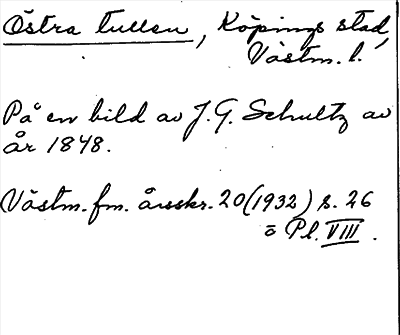 Östra tullen, Köpings stad,
Västm. l.
På en bild av J. G. Schultz av
år 1848.
Västm. fm. årsskr. 20 (1932) s. 26
o Pl. VIII.